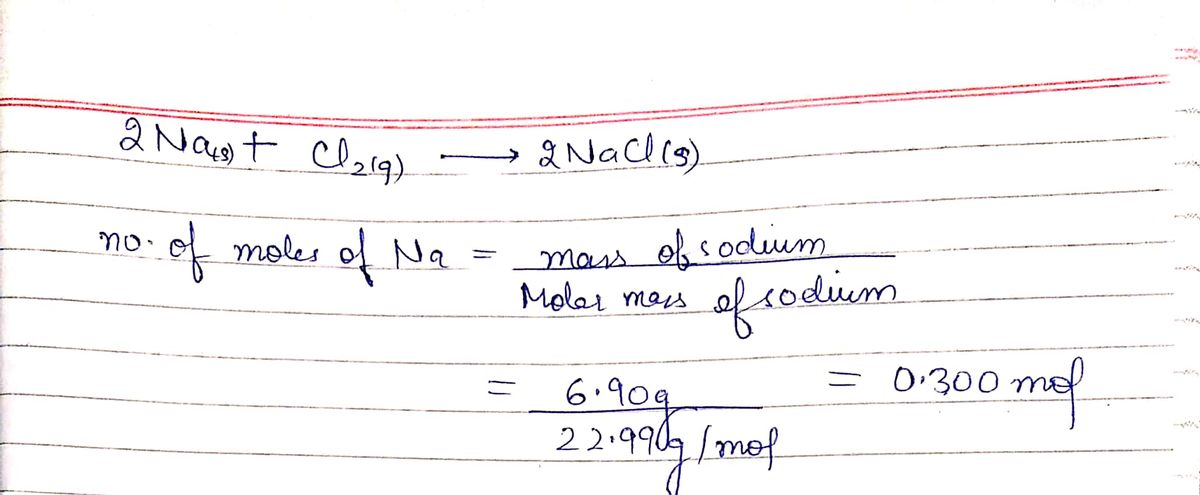 2Na(s) + Cl2(g) → 2NaCl(s)
no. of moles of Na = mass of sodium / Molar mass of sodium
= 6.90g / 22.990g/mol = 0.300 mol